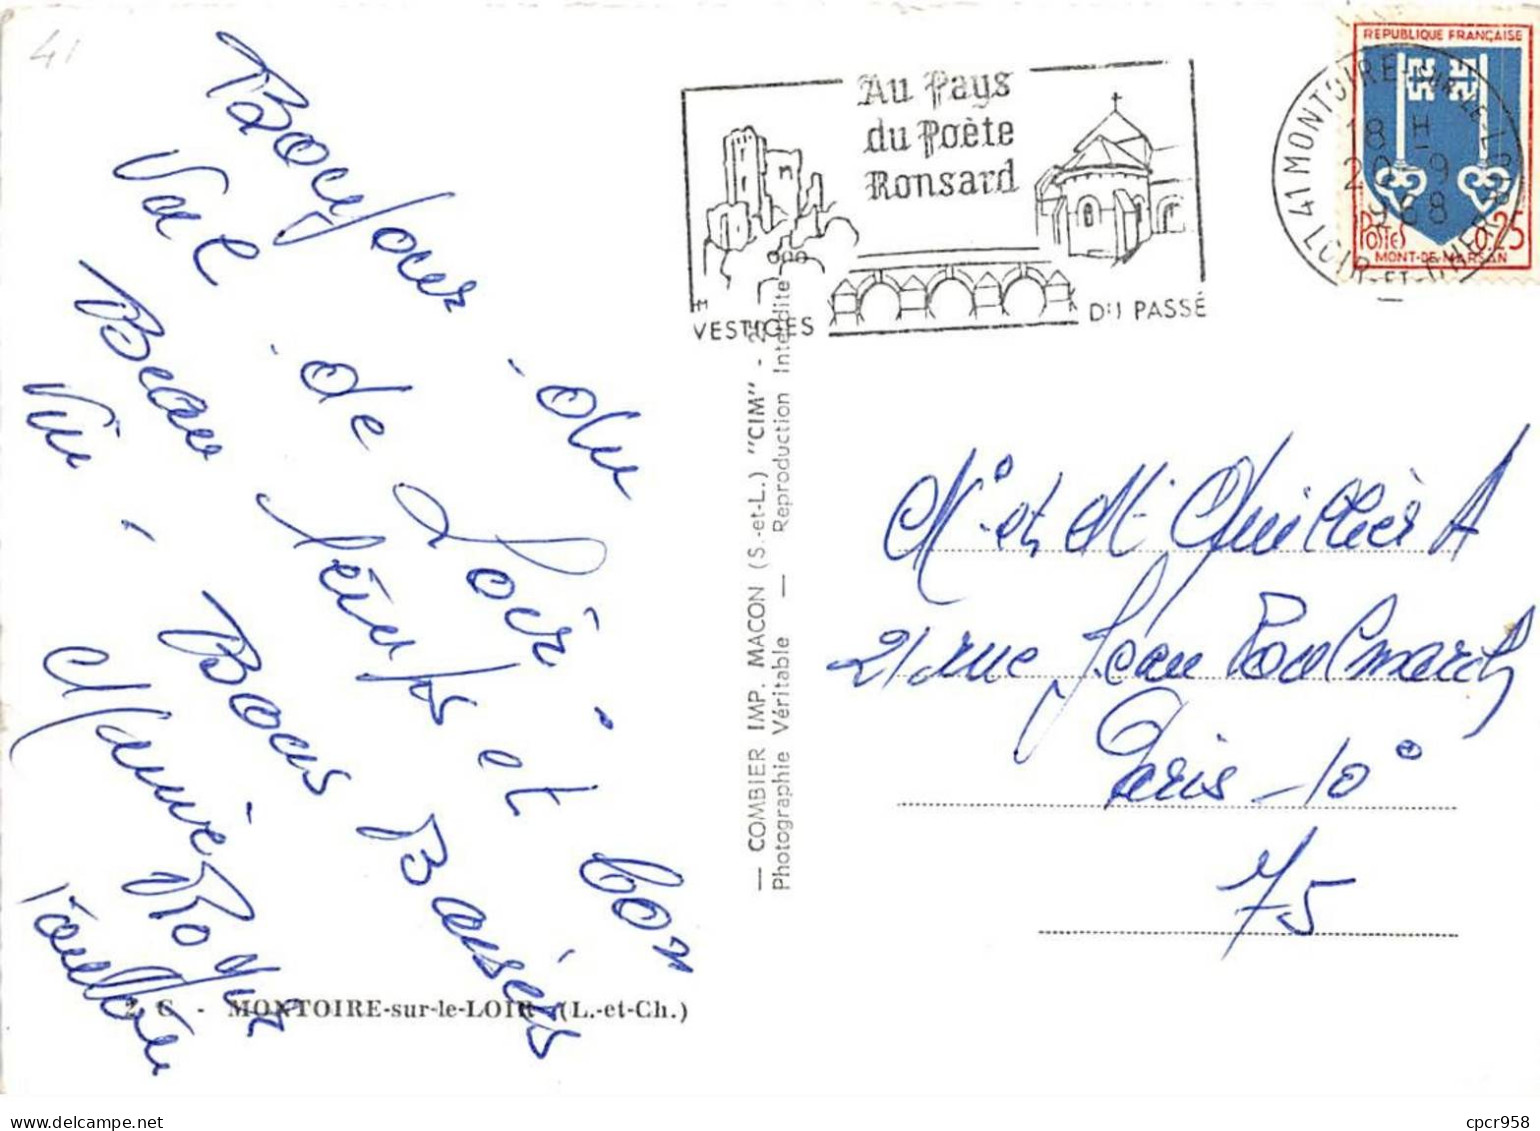 41
Bonjour du
Val de Loir.
Beau temps et bon
Vin. Bons Baisers
2 C - MONTOIRE-sur-le-LOIR (L.-et-Ch.)
— COMBIER IMP. MACON (S.-et-L.) "CIM" -
Photographie Véritable — Reproduction Interdite
Au Pays
du Poète
Ronsard
VESTIGES DU PASSÉ
41 MONTOIRE-SUR-LE-LOIR
18 H
20-9
1968
LOIR-ET-CHER
REPUBLIQUE FRANÇAISE
POSTES 0,25
MONT-DE-MARSAN
Mr et Me Quillier A
21 rue Jean Poulmarch
Paris - 10°
75
cpcr958